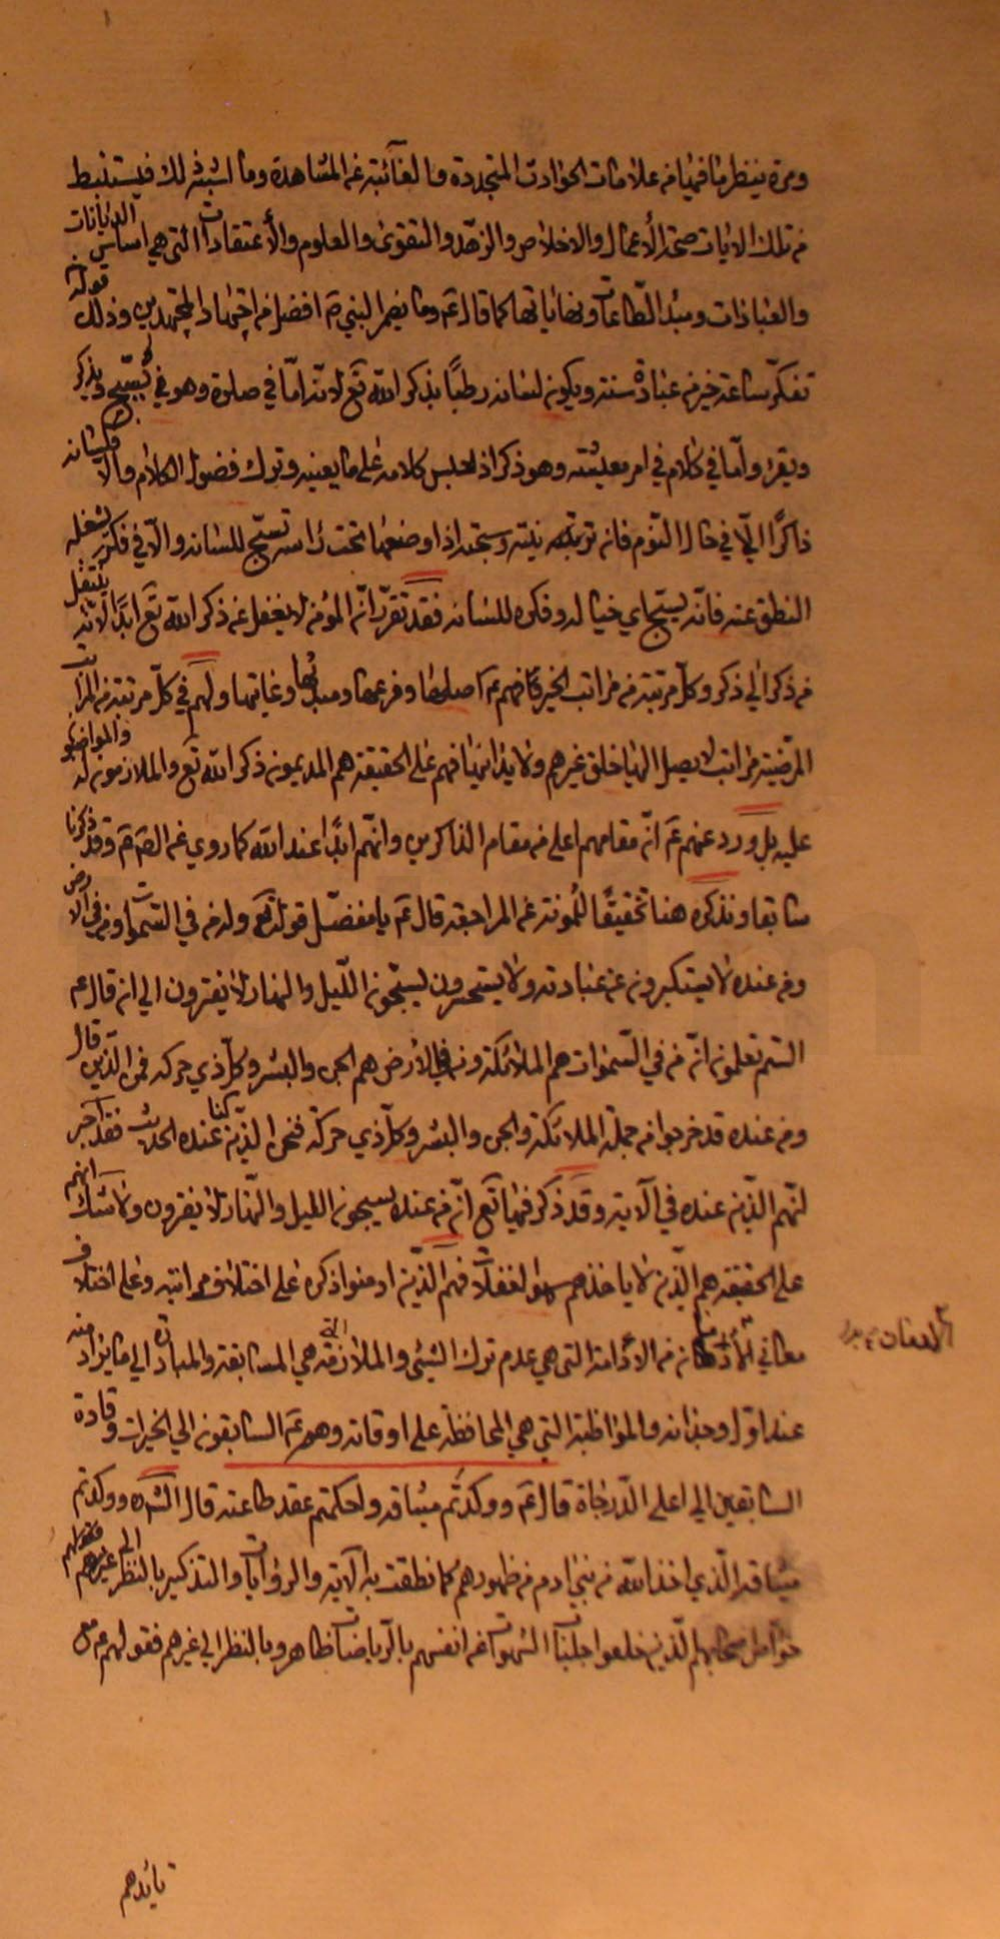 ومرة ينظر ما فيها من علامات الحوادث المتجددة والغائبة عن المشاهدة وما اشبه ذلك فيستنبط
من تلك الايات صحة الأعمال والاخلاص والزهد والتقوى والعلوم والأعتقادات التي هي اساس الديانات
والعبادات ومبدء الطاعات ونهاياتها كما قال عم وما يضمر النبي ص افضل من اجتهاد المجتهدين وذلك قوله
تفكر ساعة خير من عبادة سنة ويكون لسانه رطبًا بذكر الله تع لانه امّا في صلوة وهو في تسبيح ويذكر
ويقرء وامّا في كلام في امر معيشته وهو ذكر اذ لحبس كلامه على ما يعنيه وترك فضول الكلام والا فلسانه
ذاكرًا الّا في حال النّوم فانه نيته وسبحته اذا وضعها تحت راسه تسبّح للسانه والّا في فكر يشغله
النطق عنه فانّه يسبّح اي خياله وفكره للسانه فقد تقرّر انّ المؤمن لا يغفل عن ذكر الله تع ابدًا لانّه ينتقل
من ذكر الى ذكر وكلّ مرتبة من مراتب الخير فهم عم اصلها وفرعها ومبدؤها وغايتها ولهم في كلّ مرتبة من المراتب
المرضية مراتب لا يصل اليها خلق غيرهم ولا يدانيها فهم على الحقيقة هم المديمون ذكر الله تع والملازمون له والمواظبو
عليه بل ورد عنهم عم انّ مقامهم اعلى من مقام الذاكرين وانّهم ابدًا عند الله كما روي عن الصم وقد ذكرنا
سابقا ونذكره هنا تخفيفًا لمؤنة عن المراجعة قال عم يا مفضّل قوله تع وله من في السّموات ومن في الارض
ومن عنده لا يستكبرون عن عبادته ولا يستحسرون يسبّحون اللّيل والنهار لا يفترون الى ان قال عم
الستم تعلمون انّ من في السّموات هم الملائكة ومن في الأرض هم الجن والبشر وكلّ ذي حركة فمن الّذين قال
ومن عنده قد خرجوا من جملة الملائكة والجن والبشر وكلّ ذي حركة فنحن الّذين كنا عنده الحديث فقد اخبر
انّهم الّذين عنده في الآية وقد ذكر فيها تع انّ من عنده يسبحون الليل والنّهار لا يفترون ولا شك انهم
على الحقيقة هم الّذين لا ياخذهم سهو الغفلات فهم الّذين ادمنوا ذكره على اختلاف مراتبه وعلى اختلاف
معاني من الأدامة التي هي عدم ترك الشئ والملازمة التي هي المسابقة والمبادرة الى ما يراد منه
عند اوّل وجدانه والمواظبة التي هي المحافظة على اوقاته وهم عم السّابقون الى الخيرات وقادة
السّابقين الى اعلى الدّرجاة قال عم ووكدتم ميثاقه واحكمتم عقد طاعته قال الش ره ووكدتم
ميثاقه الّذي اخذ الله من بني ادم من ظهورهم كما نطقت به الآية والروايات والتذكير بالنظر الى غيرهم فقولهم
خواص الّذين خلعوا جلباب الشهوات عن انفسهم بالرّياضات ظاهر وبالنظر الى غيرهم فقولهم عم مع
تايدهم